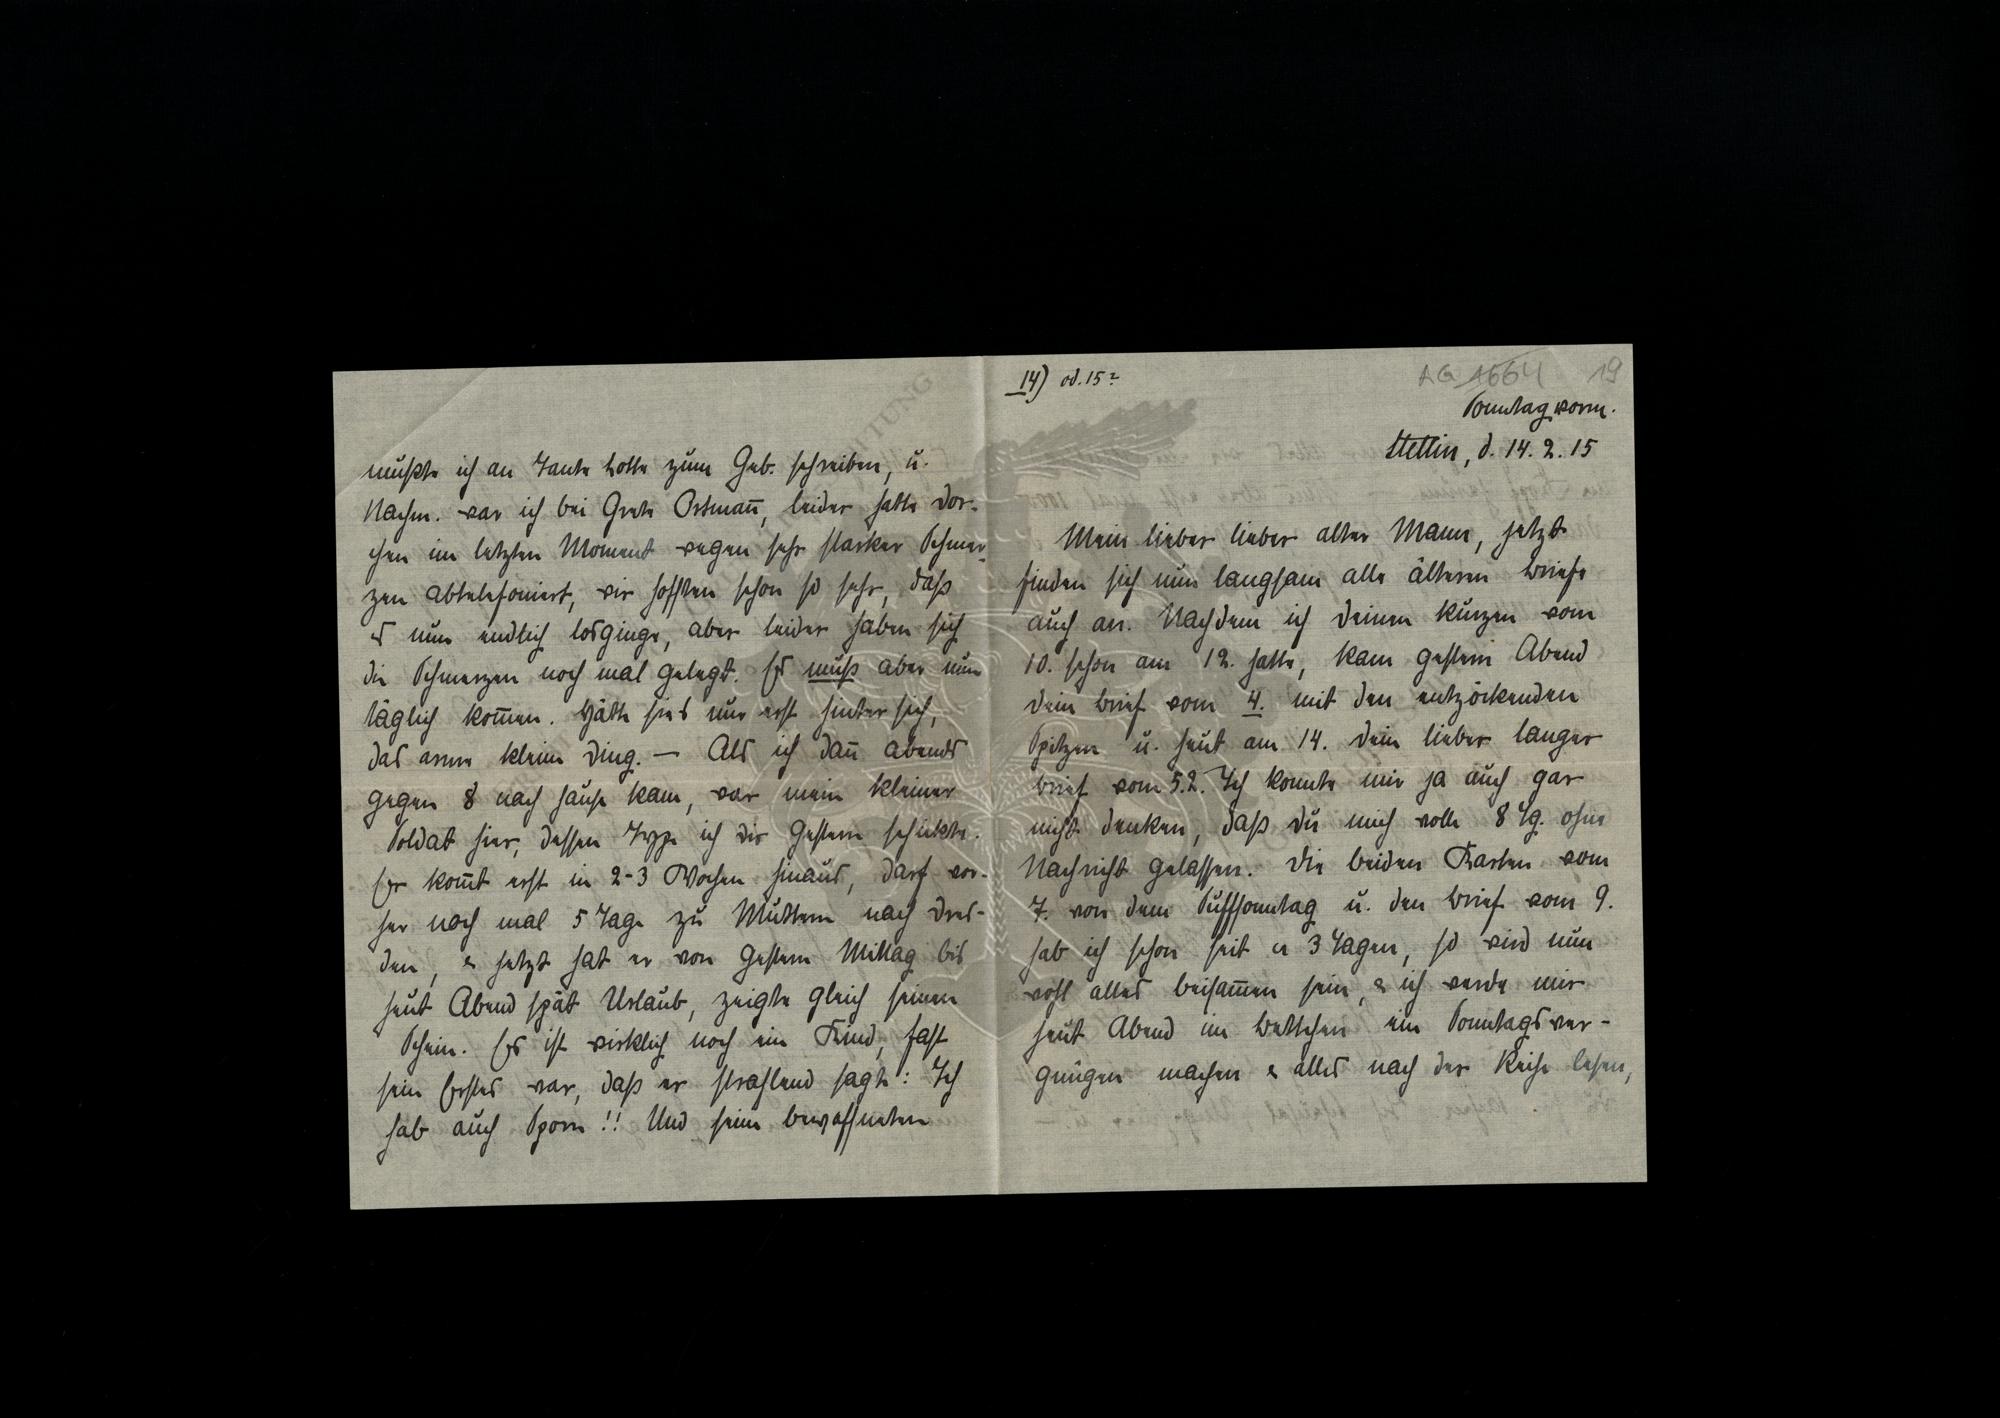 14) od. 15?
AG 1664 19
Sonntag vorm.
Stettin, d. 14. 2. 15
Mein lieber lieber alter Mann, jetzt
finden sich nun langsam alle älteren Briefe
auch an. Nachdem ich Deinen kurzen vom
10. schon am 12. hatte, kam gestern Abend
Dein Brief vom 4. mit den entzückenden
Spitzen u. heut am 14. Dein lieber langer
Brief vom 5.2. Ich konnte mir ja auch gar
nicht denken, daß Du mich volle 8 Tg. ohne
Nachricht gelassen. Die beiden Karten vom
7. von dem Suffsonntag u. den Brief vom 9.
hab ich schon seit 3 Tagen, so wird nun
wohl alles beisam̅en sein, & ich werde mir
heut Abend im Bettchen ein Sonntagsver-
gnügen machen & alles nach der Reihe lesen,
mußte ich an Tante Lotte zum Geb. schreiben, u.
Nachm. war ich bei Grete Ostman̅, leider hatte Dor-
chen im letzten Moment wegen sehr starker Schmer-
zen abtelefoniert, wir hofften schon so sehr, daß
es nun endlich losginge, aber leider haben sich
die Schmerzen noch mal gelegt. Es muß aber nun
täglich kom̅en. Hätte sies nur erst hinter sich,
das arme kleine Ding. — Als ich dan̅ abends
gegen 8 nach Hause kam, war mein kleiner
Soldat hier, dessen Type ich Dir gestern schickte.
Er kom̅t erst in 2-3 Wochen hinaus, darf vor-
her noch mal 5 Tage zu Muttern nach Dres-
den, & jetzt hat er von gestern Mittag bis
heut Abend spät Urlaub, zeigte gleich seinen
Schein. Er ist wirklich noch ein Kind, fast
sein Erstes war, daß er strahlend sagte: Ich
hab auch Sporn!! Und seine bewaffneten